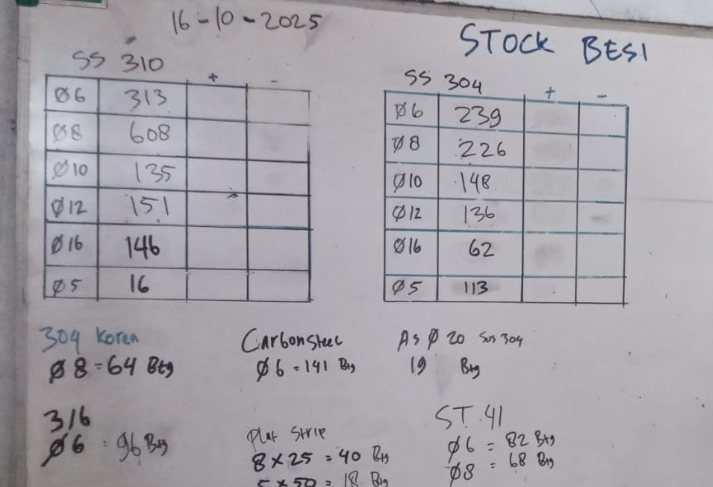 16-10-2025
STOCK BESI
SS 310
+ -
Ø6 313
Ø8 608
Ø10 135
Ø12 151
Ø16 146
Ø5 16
SS 304
+ -
Ø6 239
Ø8 226
Ø10 148
Ø12 136
Ø16 62
Ø5 113
304 Korea
Ø8 = 64 Btg
Carbon Steel
Ø6 = 141 Btg
As Ø 20 Sus 304
19 Btg
316
Ø6 = 96 Btg
Plat Strip
8 x 25 = 40 Btg
5 x 50 = 18 Btg
ST. 41
Ø6 = 82 Btg
Ø8 = 68 Btg